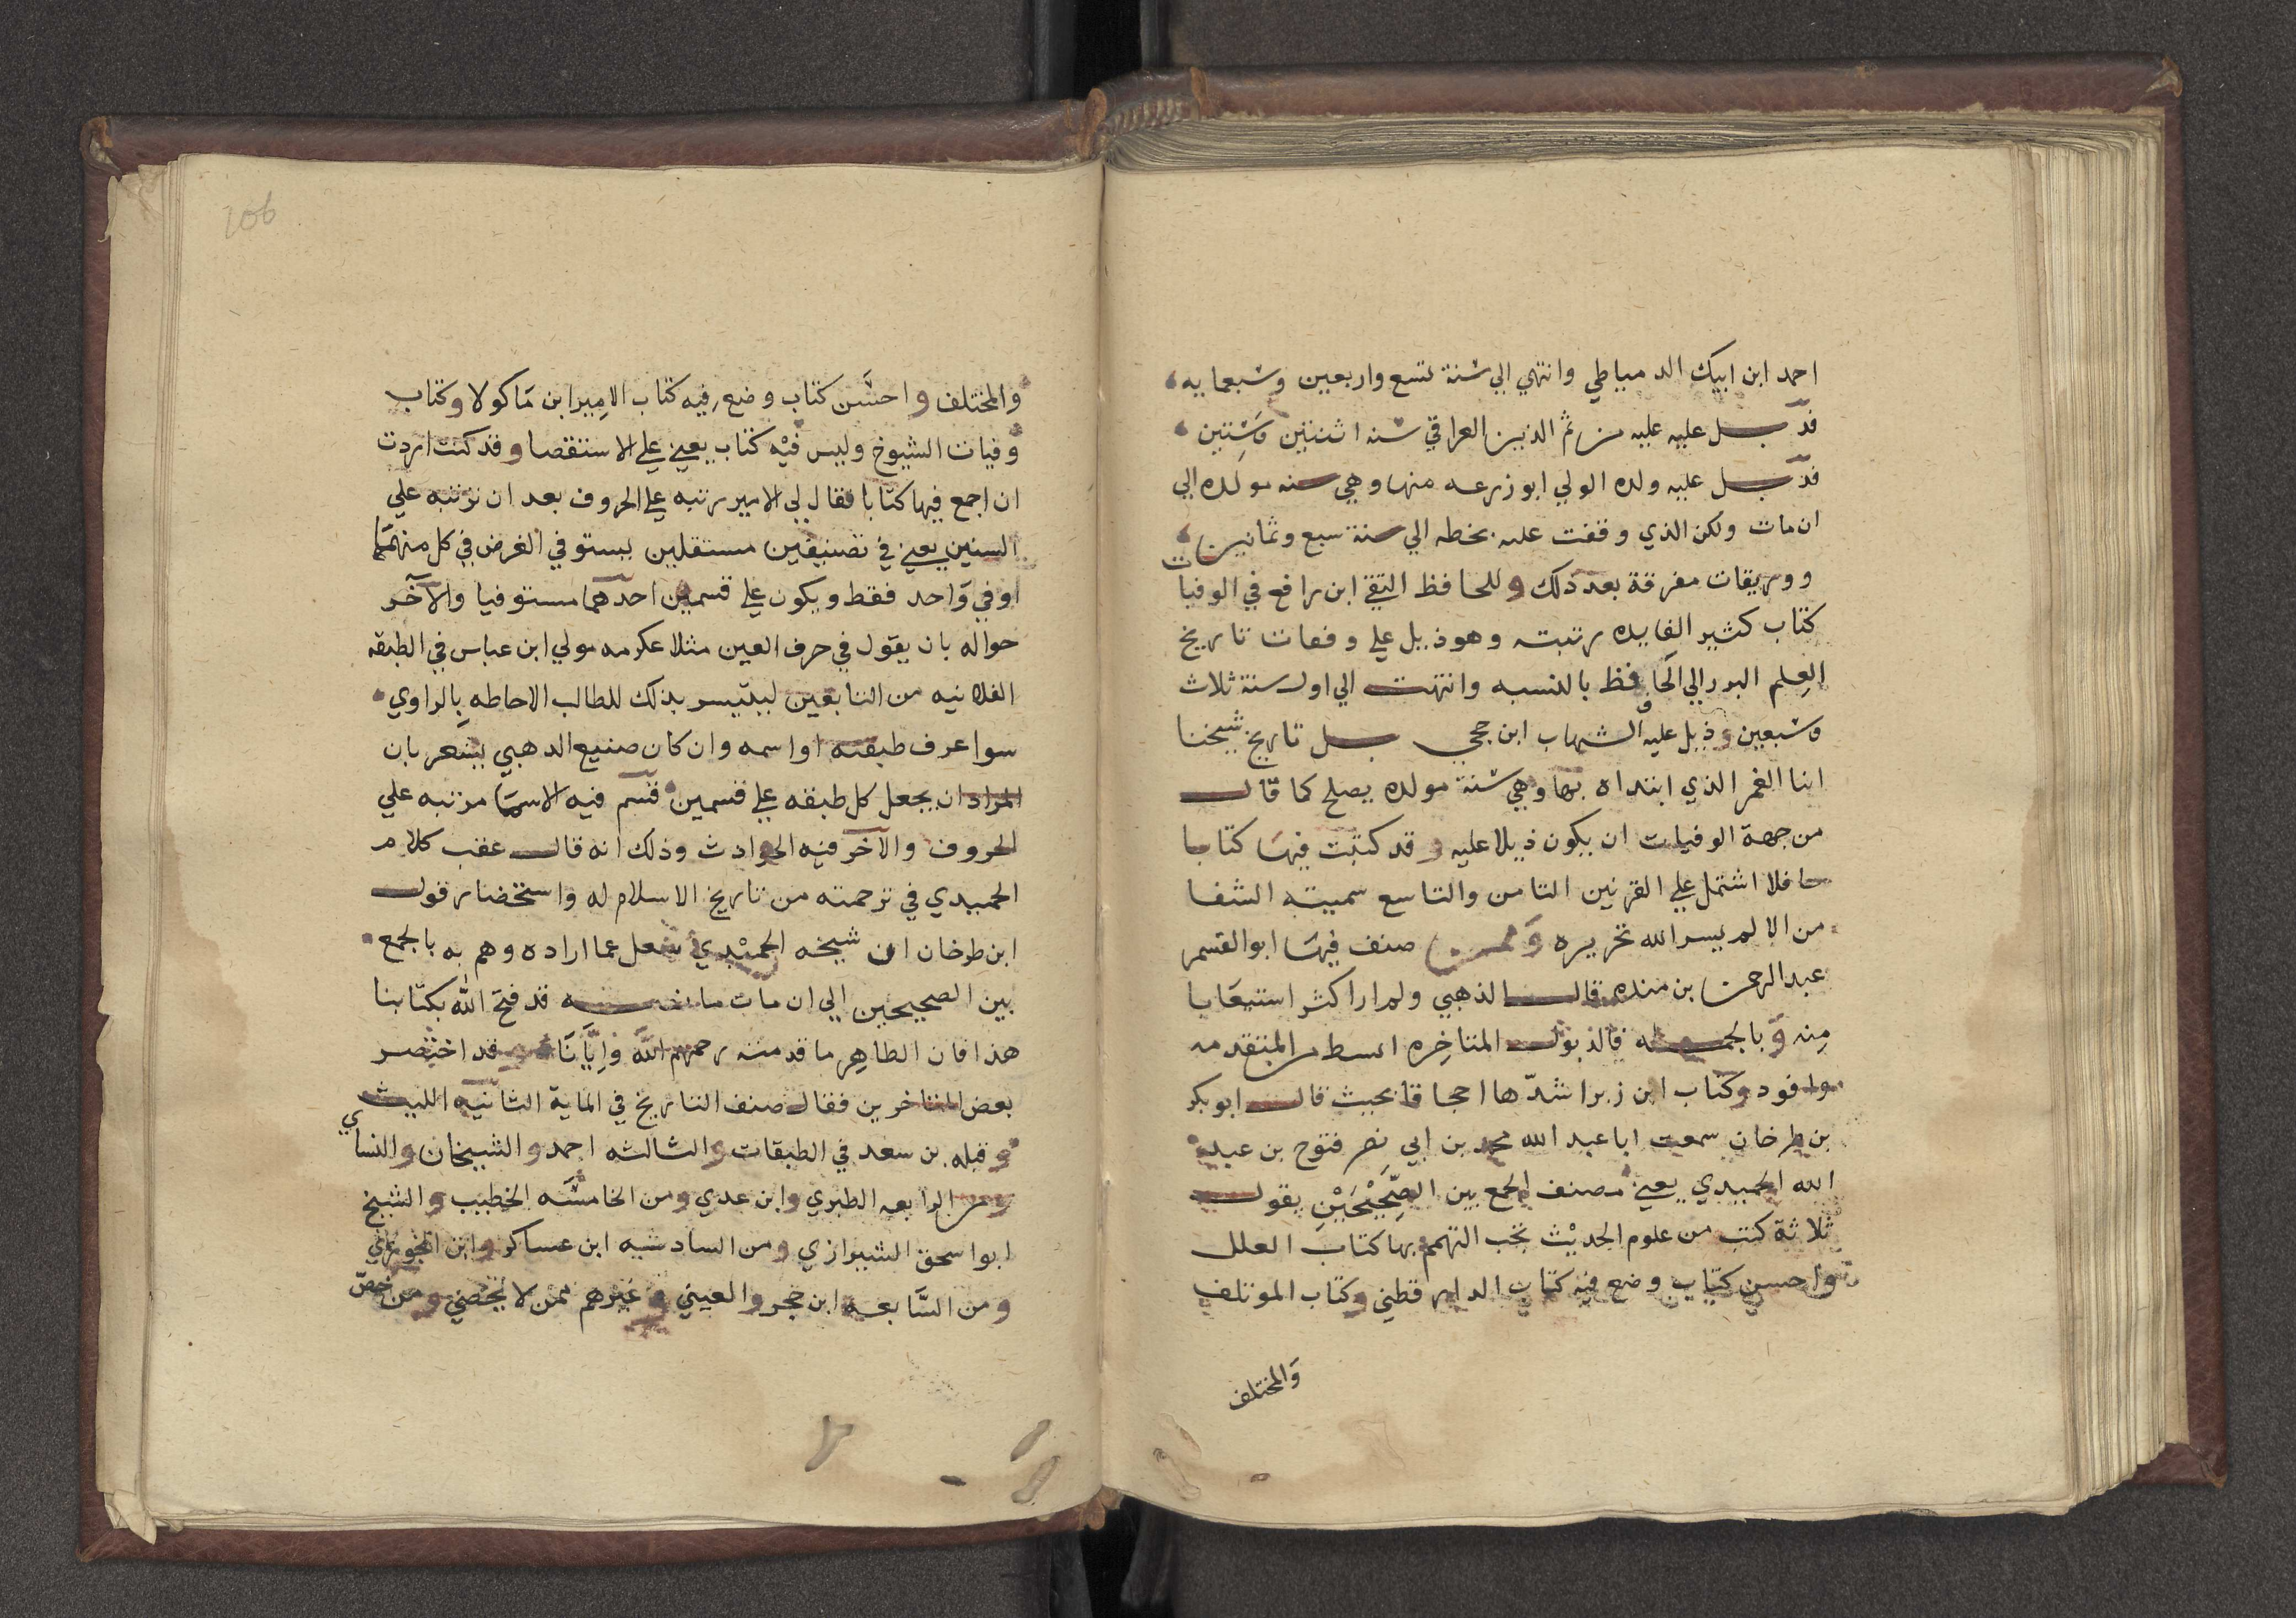 احمد ابن ايبك الدمياطي وانتهي الي سنة تسع واربعين وسبعمايه
فذيل عليه عليه من ثم الزين العراقي سنه اثنتين وستين
فذيل عليه ولده الولي ابو زرعه منها وهي سنه مولده الي
ان مات ولكن الذي وقفت عليه بخطه الي سنة سبع وثمانين
ووريقات مفرقة بعد ذلك وللحافظ التقي ابن رافع في الوفيات
كتاب كثير الفايده رتبته وهو ذيل علي وفيات تاريخ
العلم البرزالي الحافظ بالنسبه وانتهت الي اول سنة ثلاث
وسبعين وذيل عليه الشهاب ابن حجي بل تاريخ شيخنا
انبا الغمر الذي ابتداه بها وهي سنة مولده يصلح كما قال
من جهة الوفيات ان يكون ذيلا عليه وقد كتبت فيها كتابا
حافلا اشتمل علي القرنين الثامن والتاسع سميته الشفا
من الالم يسر الله تحريره وممن صنف فيها ابو القسم
عبد الرحمن بن منده قال الذهبي ولم ار اكثر استيعابا
منه وبالجمله فالذيول المتاخره ابسط من المتقدمه
وافود وكتاب ابن زبر اشدها اجحافا بحيث قال ابو بكر
بن طرخان سمعت ابا عبد الله محمد بن ابي نصر فتوح بن عبد
الله الحميدي يعني مصنف الجمع بين الصحيحين يقول
ثلاثة كتب من علوم الحديث يجب التهمم بها كتاب العلل
واحسن كتاب وضع فيه كتاب الدارقطني وكتاب الموتلف
والمختلف
106
والمختلف واحسن كتاب وضع فيه كتاب الامير ابن ماكولا وكتاب
وفيات الشيوخ وليس فيه كتاب يعني علي الاستقصا وقد كنت اردت
ان اجمع فيها كتابا فقال لي الامير رتبه علي الحروف بعد ان ترتبه علي
السنين يعني في تصنيفين مستقلين يستوفي الغرض في كل منهما
او في واحد فقط ويكون علي قسمين احدهما مستوفيا والآخر
حواله بان يقول في حرف العين مثلا عكرمه مولي ابن عباس في الطبقه
الفلانيه من التابعين ليتيسر بذلك للطالب الاحاطه بالراوي
سوا عرف طبقته او اسمه وان كان صنيع الذهبي يشعر بان
المراد ان يجعل كل طبقه علي قسمين قسم فيه الاسما مرتبه علي
الحروف والآخر فيه الحوادث وذلك انه قال عقب كلام
الحميدي في ترجمته من تاريخ الاسلام له واستحضار قول
ابن طرخان ان شيخه الحميدي شغل عما اراده وهم به بالجمع
بين الصحيحين الي ان مات ما نصه قد فتح الله بكتابنا
هذا فان الظاهر ما قدمته رحمهم الله وايانا وقد اختصر
بعض المتاخرين فقال صنف التاريخ في الماية الثانيه الليث
وقبله بن سعد في الطبقات والثالثه احمد والشيخان والنساي
ومن الرابعه الطبري وابن عدي ومن الخامسه الخطيب والشيخ
ابو اسحق الشيرازي ومن السادسه ابن عساكر وابن الجوزي
ومن السابعه ابن حجر والعيني وغيرهم ممن لا يحصي ومن خص